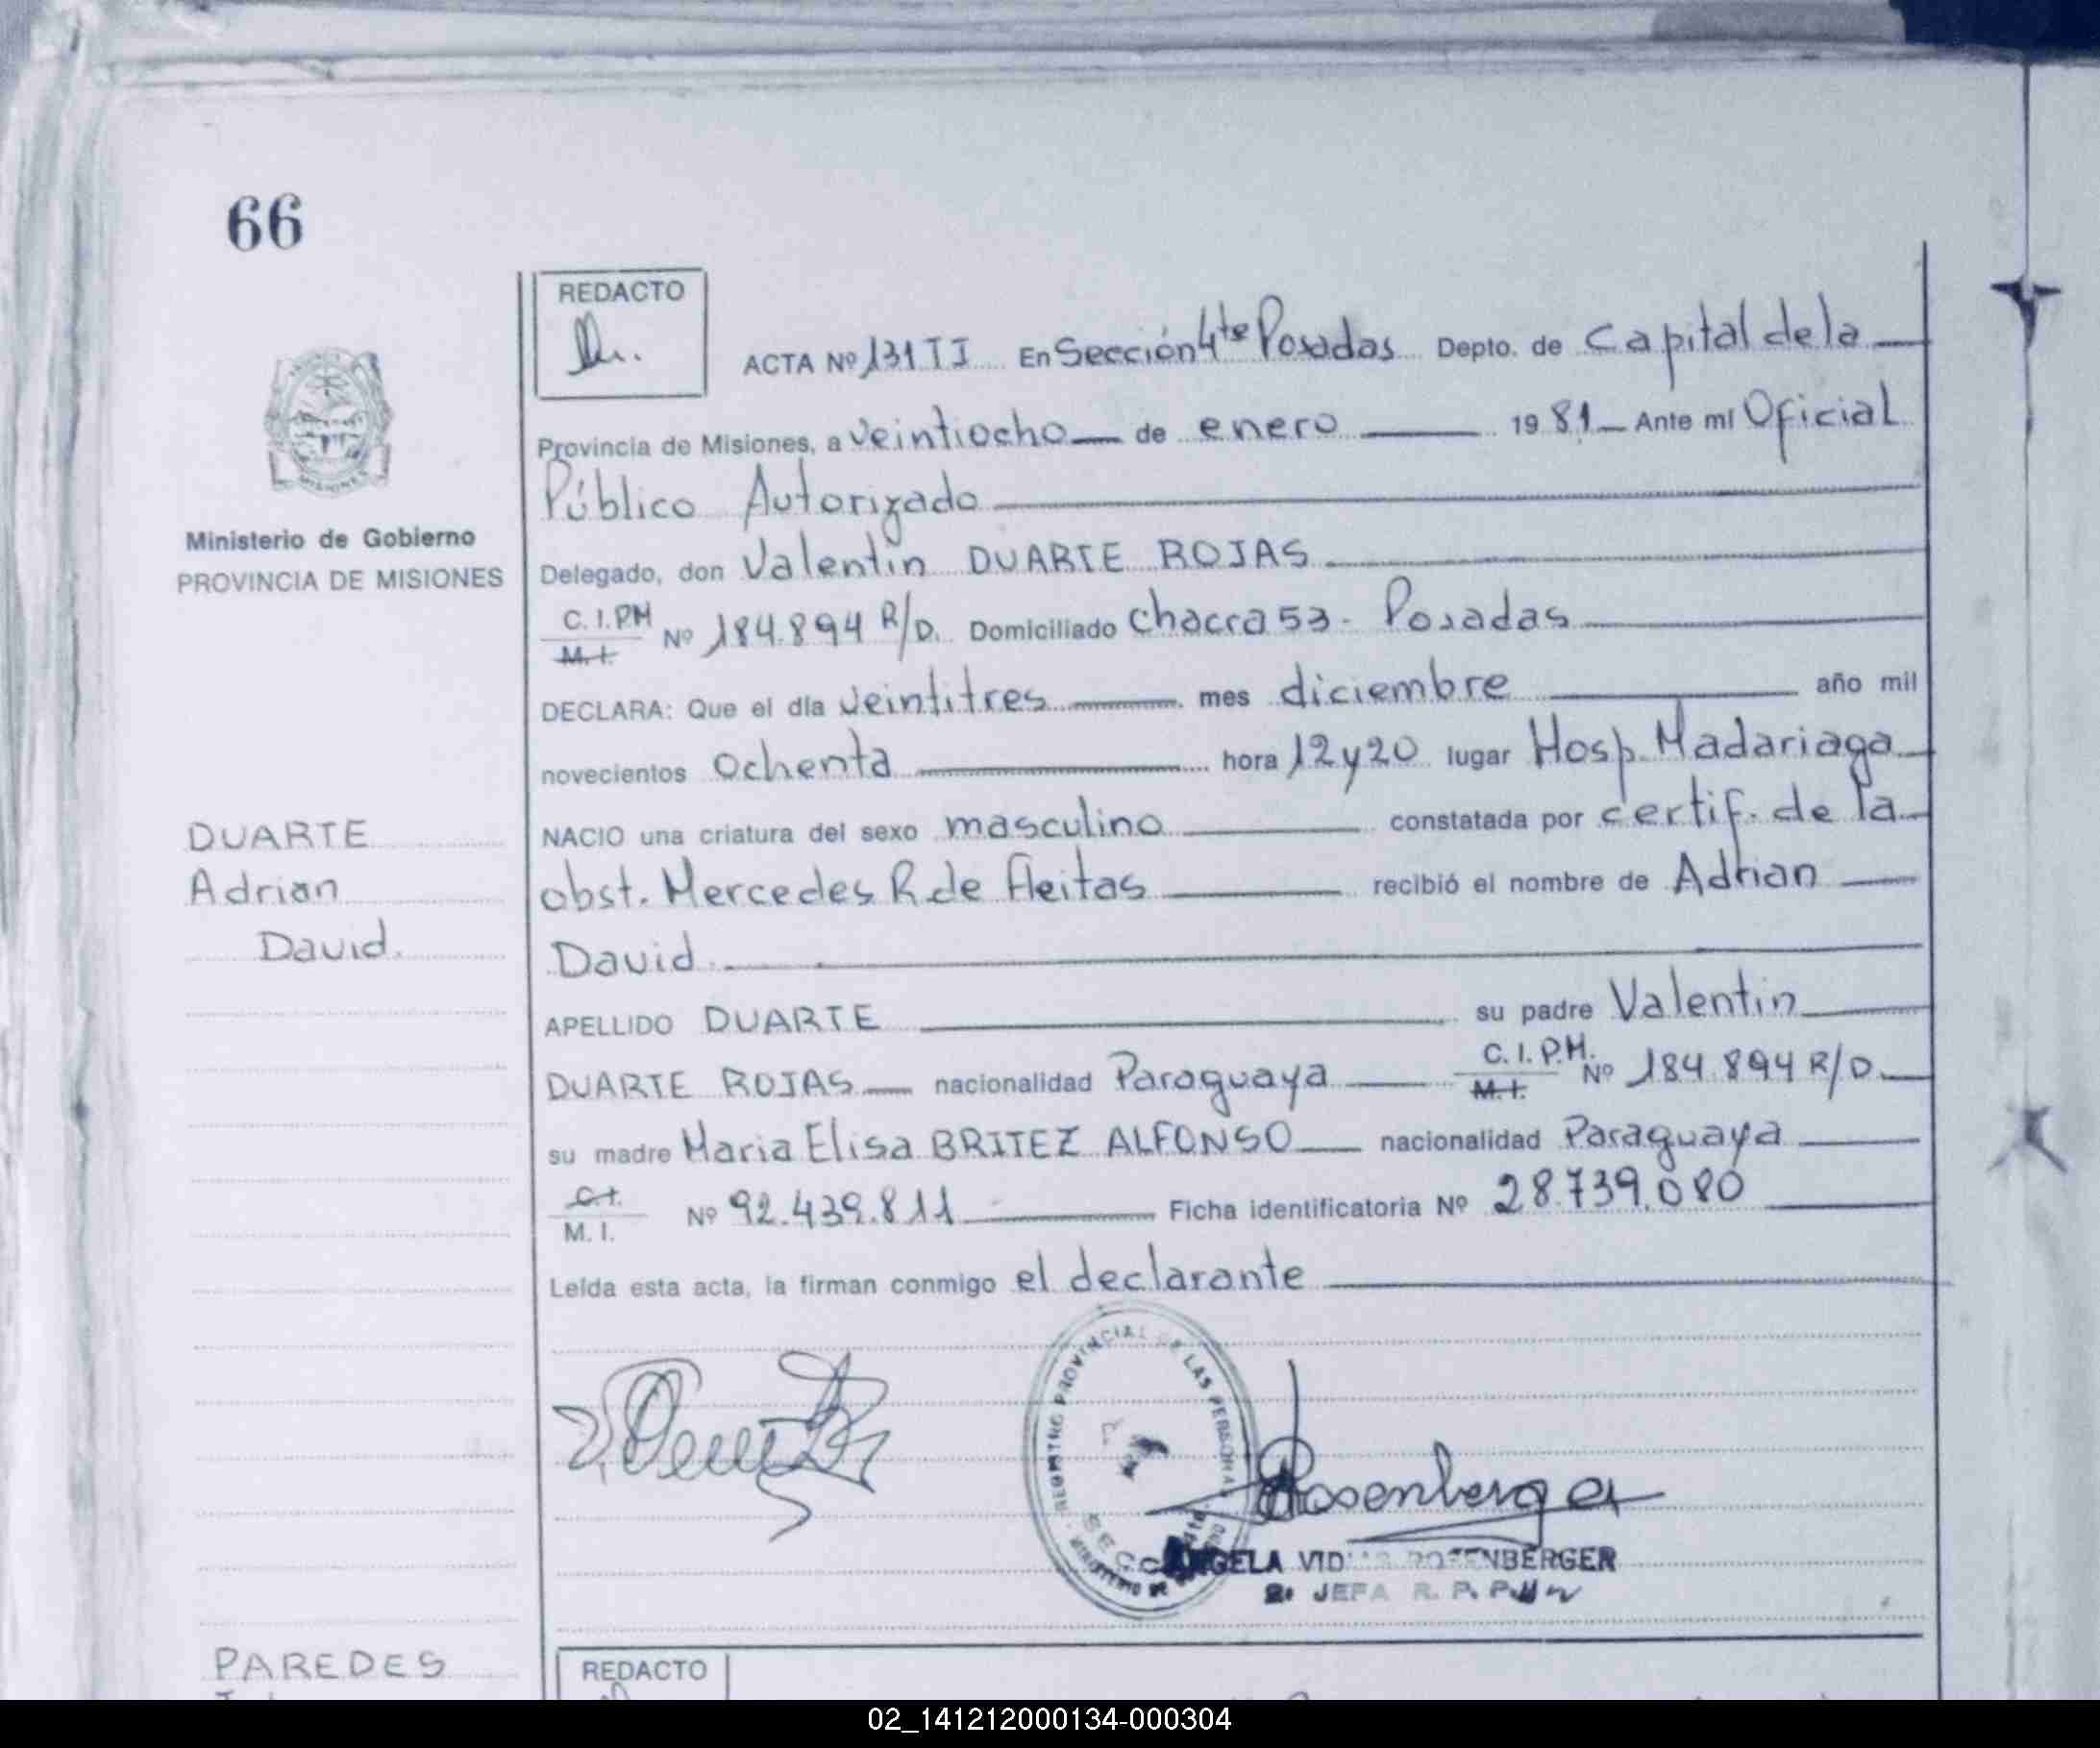 66
MISIONES
Ministerio de Gobierno
PROVINCIA DE MISIONES
DUARTE
Adrian
David.
REDACTO
ACTA Nº 131 TI En Sección 4ta Posadas Depto. de Capital de la
Provincia de Misiones, a veintiocho de enero 1981 Ante mí Oficial
Público Autorizado
Delegado, don Valentin DUARTE ROJAS
C.I.PM
M.I. Nº 184.894 R/D. Domiciliado Chacra 53 - Posadas
DECLARA: Que el día veintitres mes diciembre año mil
novecientos ochenta hora 12 y 20 lugar Hosp. Madariaga
NACIO una criatura del sexo masculino constatada por certif. de la
obst. Mercedes R. de Fleitas recibió el nombre de Adrian
David
APELLIDO DUARTE su padre Valentin
DUARTE ROJAS nacionalidad Paraguaya C.I.P.M.
M.I. Nº 184.894 R/D.
su madre Maria Elisa BRITEZ ALFONSO nacionalidad Paraguaya
C.I.
M.I. Nº 92.439.811 Ficha identificatoria Nº 28.739.080
Leída esta acta, la firman conmigo el declarante
REGISTRO PROVINCIAL DE LAS PERSONAS
Rosenberger
ROSENBERGER
JEFA R. P. P.
PAREDES
REDACTO
02_141212000134-000304